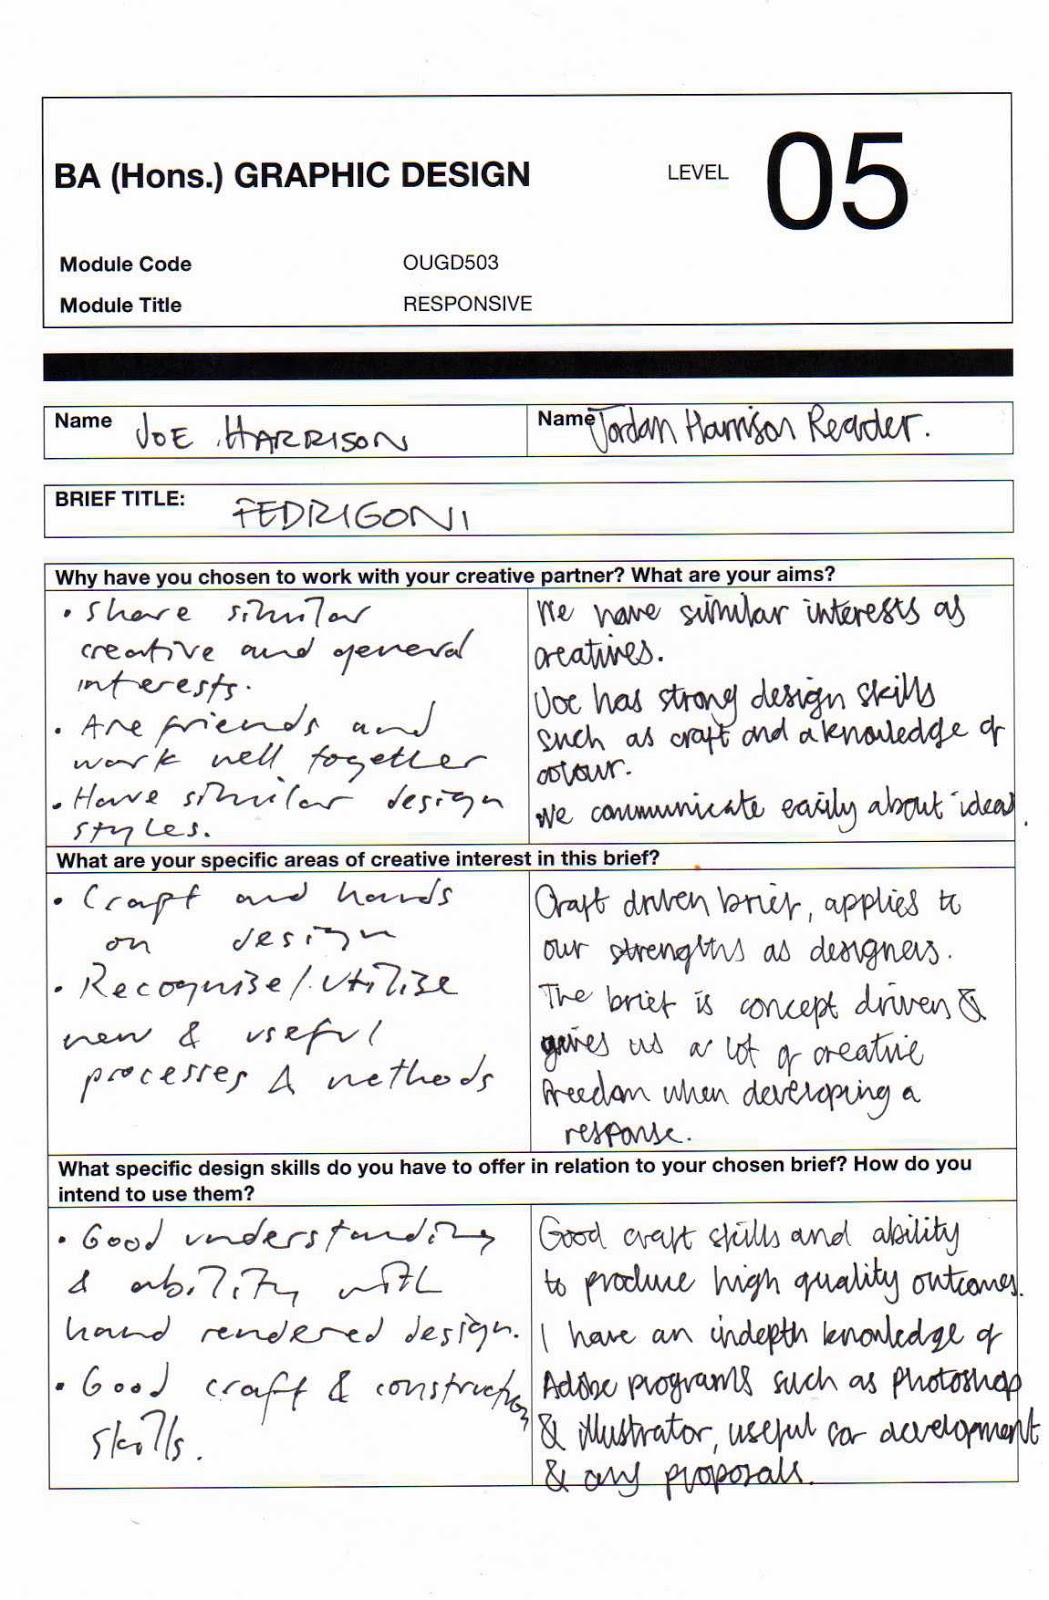 BA (Hons.) GRAPHIC DESIGN
LEVEL 05
Module Code OUGD503
Module Title RESPONSIVE
Name JOE HARRISON
Name Jordan Harrison Reader.
BRIEF TITLE: FEDRIGONI
Why have you chosen to work with your creative partner? What are your aims?
• Share similar
creative and general
interests.
• Are friends and
work well together
• Have similar design
styles.
We have similar interests as
creatives.
Joe has strong design skills
such as craft and a knowledge of
colour.
We communicate easily about ideas.
What are your specific areas of creative interest in this brief?
• Craft and hands
on design
• Recognise/utilise
new & useful
processes & methods
Craft driven brief, applies to
our strengths as designers.
The brief is concept driven &
gives us a lot of creative
freedom when developing a
response.
What specific design skills do you have to offer in relation to your chosen brief? How do you
intend to use them?
• Good understanding
& ability with
hand rendered design.
• Good craft & construction
skills.
Good craft skills and ability
to produce high quality outcomes.
I have an indepth knowledge of
Adobe programs such as Photoshop
& illustrator, useful for development
& any proposals.